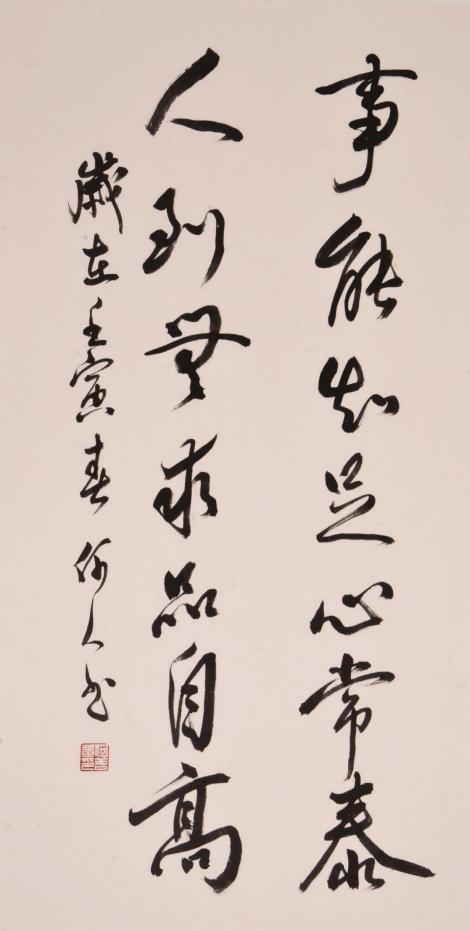 事能知足心常泰
人到無求品自高
歲在壬寅春 何人书